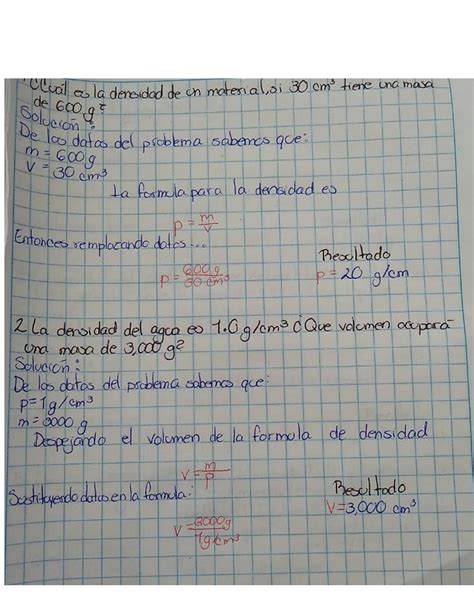 ¿Cual es la densidad de un material, si 30 cm³ tiene una masa
de 600 g?
Solución:
De los datos del problema sabemos que:
m = 600 g
V = 30 cm³
La formula para la densidad es
p = m/v
Entonces remplazando datos...
Resultado
p = 600 g/30 cm³
p = 20 g/cm
2 La densidad del agua es 1.0 g/cm³ ¿Que volumen ocupará
una masa de 3,000 g?
Solución:
De los datos del problema sabemos que:
p = 1g/cm³
m = 3000 g
Despejando el volumen de la formula de densidad
v = m/p
Sustituyendo datos en la formula:
Resultado
V = 3,000 cm³
v = 3000g/1g/cm³